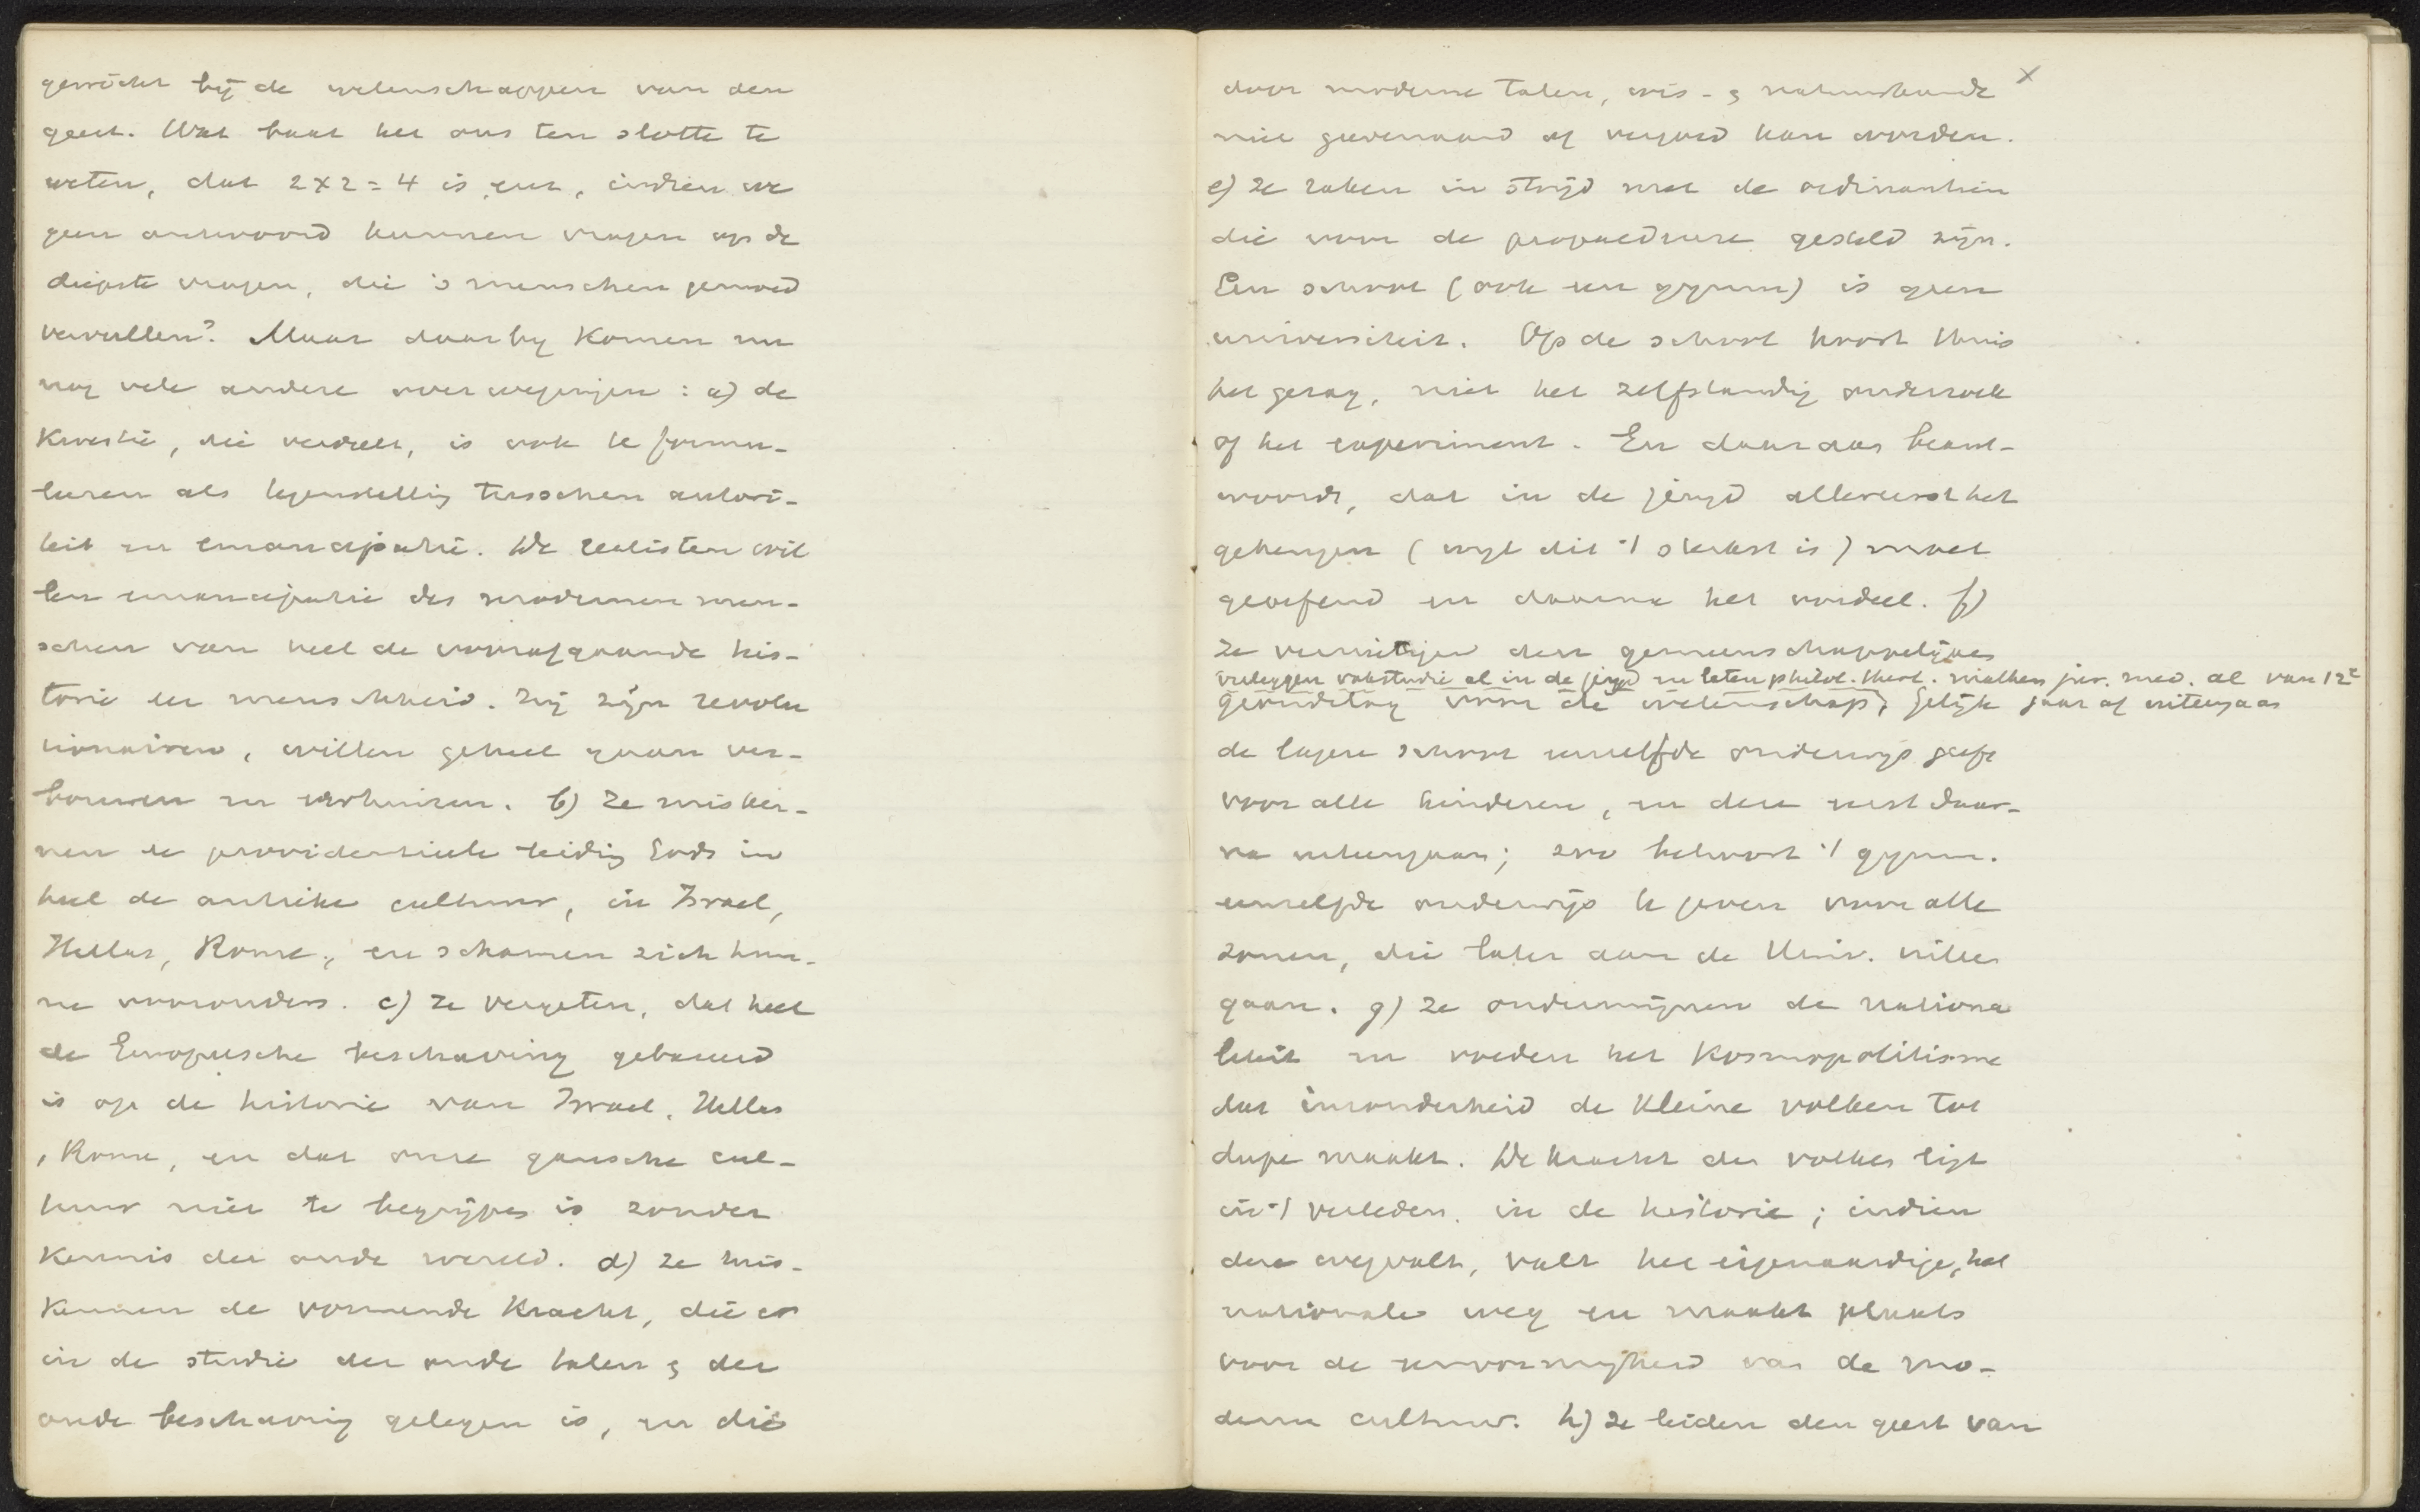 gewicht bij de wetenschappen van den
geest. Wat baat het ons ten slotte te
weten, dat 2x2=4 is enz, indien we
geen antwoord kunnen vragen op de
diepste vragen, die 's menschen gemoed
vervullen? Maar daarbij komen nu
nog vele andere overwegingen: a) de
kwestie, die verdeelt, is ook te formu-
leeren als tegenstelling tusschen autori-
teit en emancipatie. De realisten wil
len emancipatie des modernen men-
schen van heel de voorafgaande his-
torie en menschheid. Zij zijn revolu
tionairen, willen geheel gaan ver-
bouwen en verhuizen. b) Ze misken-
nen de providentieele leiding Gods in
heel de antieke cultuur, in Israel,
Hellas, Rome, en schamen zich hun-
ne voorouders. c) ze vergeten, dat heel
de Europeesche beschaving gebouwd
is op de historie van Israel, Hellas
, Rome, en dat onze gansche cul-
tuur niet te begrijpen is zonder
kennis der oude wereld. d) ze mis-
kennen de vormende kracht, die er
in de studie der oude talen & der
oude beschaving gelegen is, en die
door moderne talen, wis- & natuurkunde x
niet geevenaard of vergoed kan worden.
e) ze raken in strijd met de ordinantiën
die voor de propaedeuse gesteld zijn.
Een school (ook een gymn) is geen
universiteit. Op de school hoort thuis
het gezag, niet het zelfstandig onderzoek
of het experiment. En daaraan beant-
woordt, dat in de jeugd allereerst het
geheugen (wijl dit 't sterkst is) moet
geoefend en daarna het oordeel. f)
ze vernietigen den gemeenschappelijken
verleggen vakstudie al in de jeugd en laten philol. theol. mathem jur. med. al van 12e
grondslag voor de wetenschap; gelijk jaar af uiteengaan
de lagere school eenzelfde onderwijs geeft
voor alle kinderen, en den eerst daar-
na uiteengaan; zoo behoort 't gymn.
eenzelfde onderwijs te geven voor alle
zonen, die later aan de Univ. willen
gaan. g) ze ondermijnen de nationa
liteit en voeden het kosmopolitisme
dat inzonderheid de kleine volken tot
dupe maakt. De kracht des volkes ligt
in 't verleden. in de historie; indien
deze wegvalt, valt het eigenaardige, het
nationale weg en maakt plaats
voor de eenvormigheid van de mo-
derne cultuur. h) ze leiden den geest van